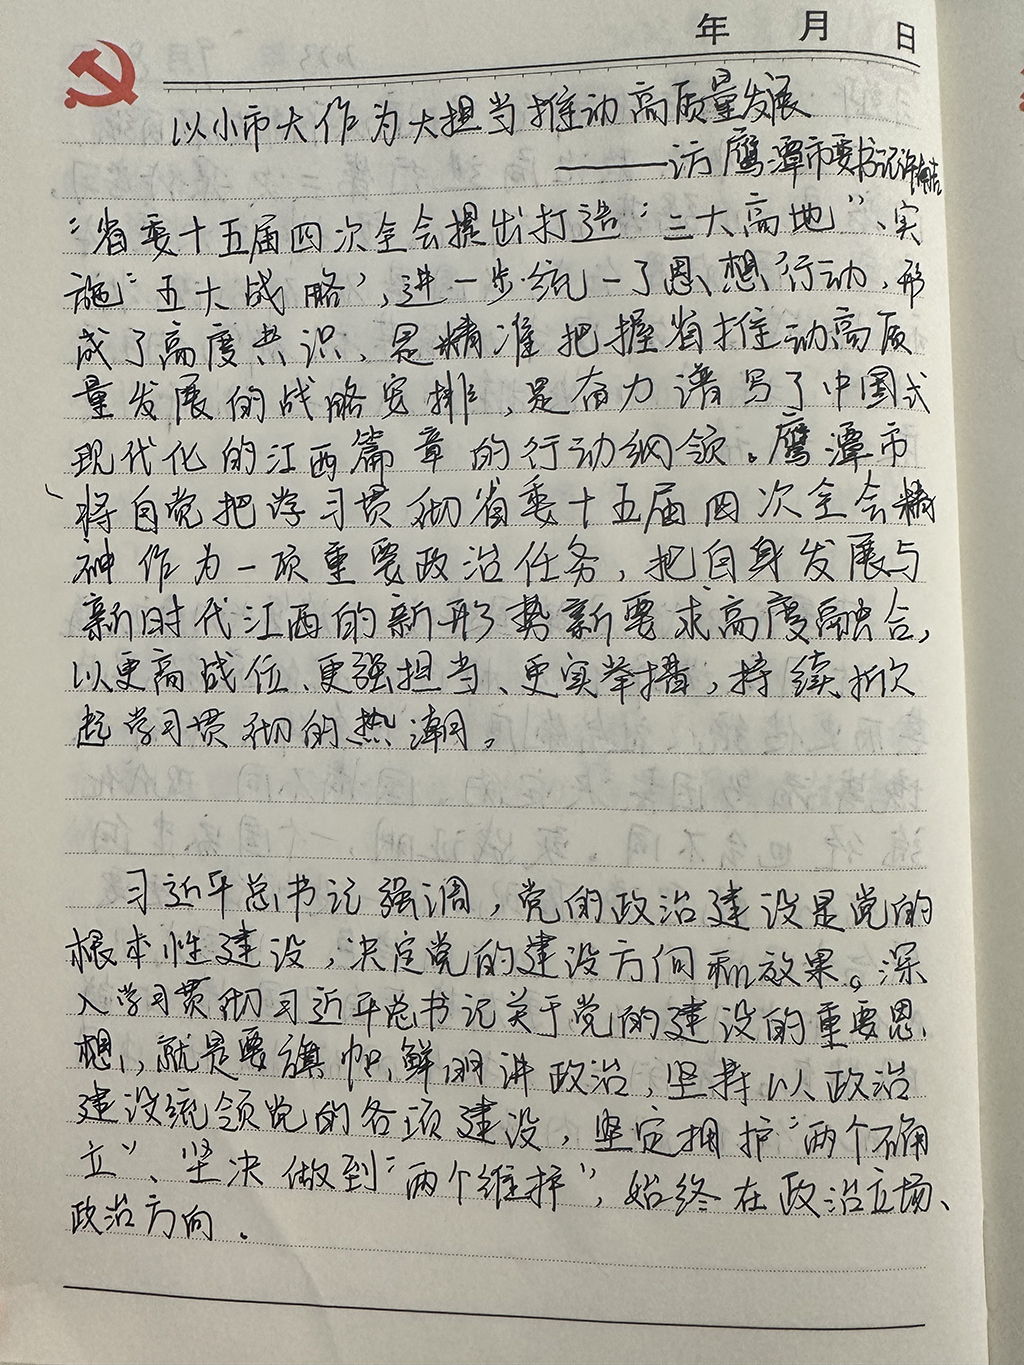 年 月 日
以小市大作为大担当推动高质量发展
——访鹰潭市委书记许南吉
“省委十五届四次全会提出打造“三大高地”、实
施“五大战略”，进一步统一了思想行动，形
成了高度共识，是精准把握省推动高质
量发展的战略安排，是奋力谱写了中国式
现代化的江西篇章的行动纲领。鹰潭市
将自觉把学习贯彻省委十五届四次全会精
神作为一项重要政治任务，把自身发展与
新时代江西的新形势新要求高度融合，
以更高战位、更强担当、更实举措，持续掀
起学习贯彻的热潮。
习近平总书记强调，党的政治建设是党的
根本性建设，决定党的建设方向和效果。深
入学习贯彻习近平总书记关于党的建设的重要思
想，就是要旗帜鲜明讲政治，坚持以政治
建设统领党的各项建设，坚定拥护“两个确
立”、坚决做到“两个维护”，始终在政治立场、
政治方向.